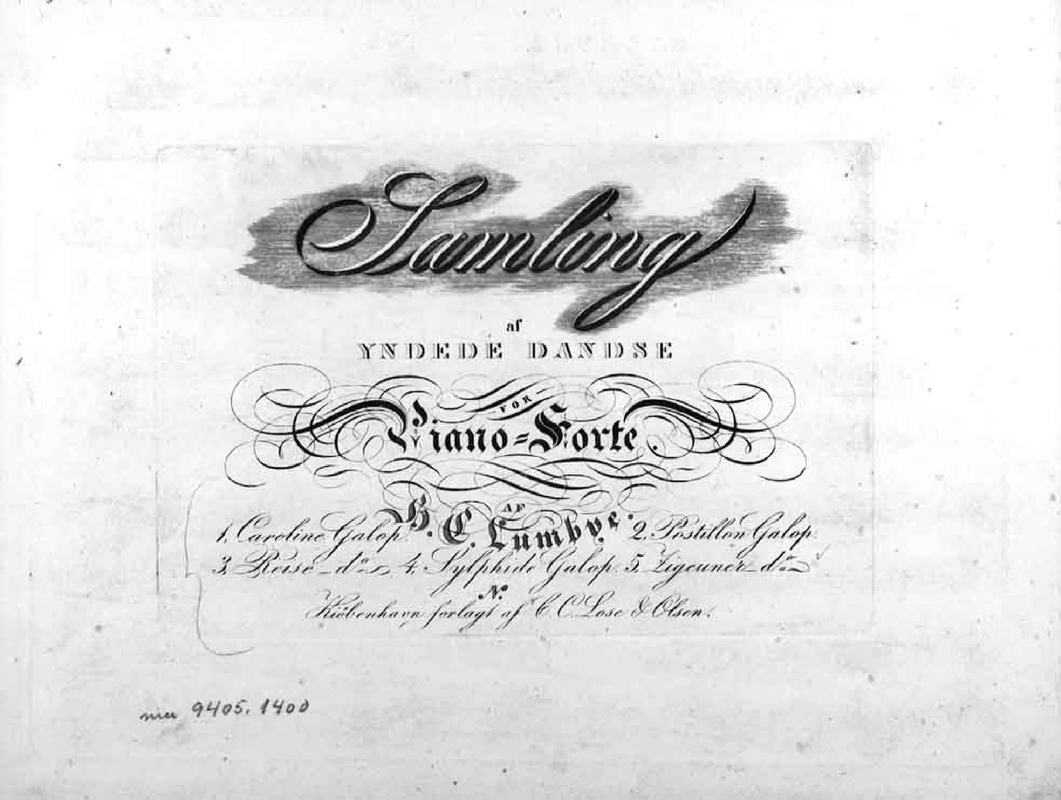 Samling
af
YNDEDE DANDSE
FOR
Piano=Forte.
AF
H. C. Lumbye.
1. Caroline Galop. 2. Postillon Galop.
3. Reise _ do 4. Sylphide Galop. 5. Zigeuner _ do
No.
Kiöbenhavn forlagt af C. C. Lose & Olsen.
9405. 1400